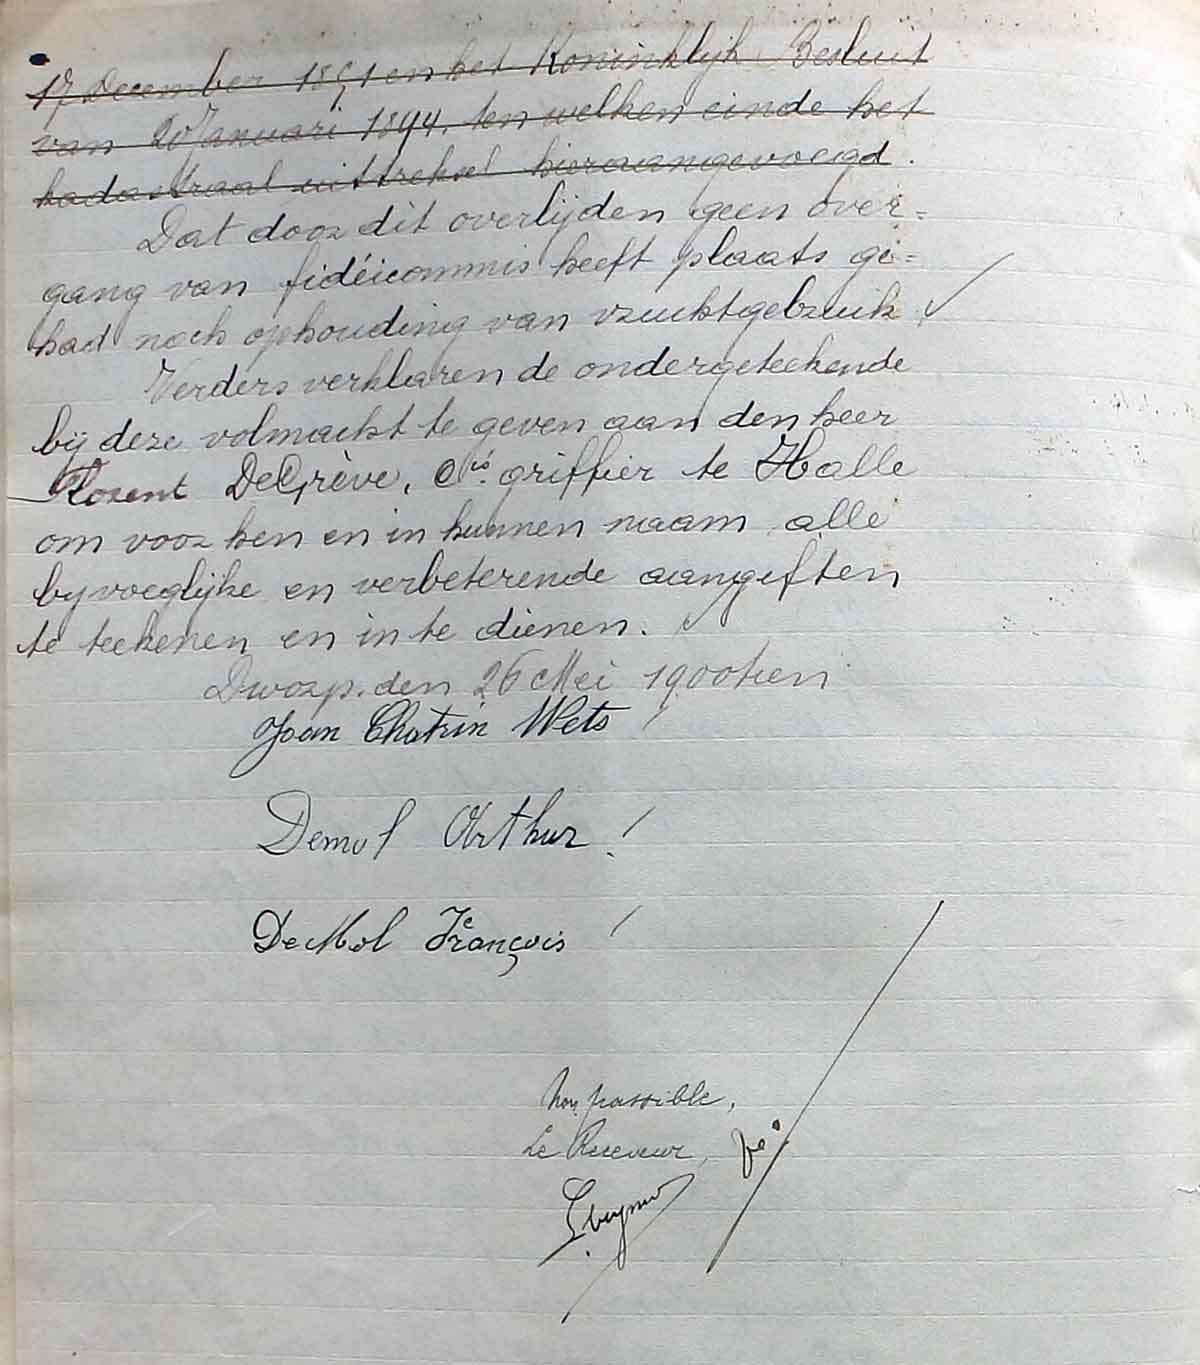 17 December 1851 en het Koninklijk Besluit
van 20 Januari 1894, ten welken einde het
kadastraal uittreksel hieraangevoegd.
Dat door dit overlijden geen over=
gang van fidéicommis heeft plaats ge=
had noch ophouding van vruchtgebruik
Verders verklaren de ondergeteekende
bij deze volmacht te geven aan den heer
Florent DeGrève, cis. griffier te Halle
om voor hen en in hunnen naam alle
byvoeglijke en verbeterende aangiften
te teekenen en in te dienen.
Dworp. den 26 Mei 1900tien
Joan Chatrin Wets
Demol Arthur
DeMol François
Non passible,
Le Receveur,